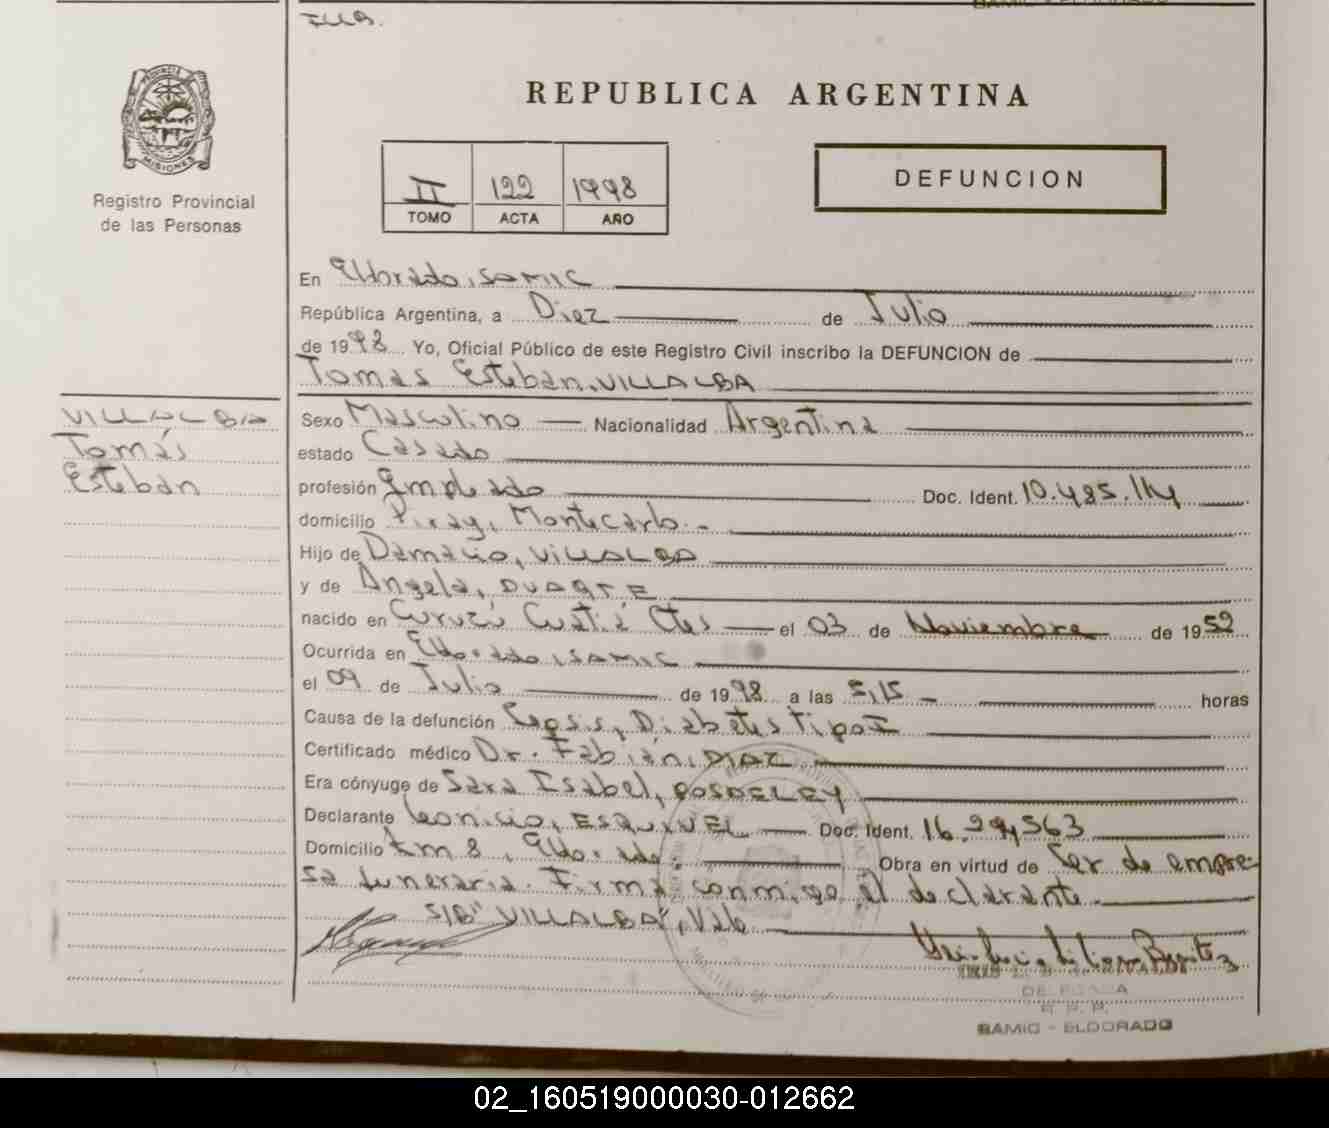 REPUBLICA ARGENTINA
MISIONES
Registro Provincial
de las Personas
II 122 1998
TOMO ACTA AÑO
DEFUNCION
En Eldorado, SAMIC
República Argentina, a Diez de Julio
de 1998 Yo, Oficial Público de este Registro Civil inscribo la DEFUNCION de
Tomas Esteban, VILLALBA
VILLALBA
Tomás
Esteban
Sexo Masculino Nacionalidad Argentina
estado Casado
profesión Empleado Doc. Ident. 10.485.114
domicilio Piray, Montecarlo.-
Hijo de Damacio, VILLALBA
y de Angela, DUARTE
nacido en Curuzú Cuatiá Ctes el 03 de Noviembre de 1952
Ocurrida en Eldorado, SAMIC
el 09 de Julio de 1998 a las 5,15 horas
Causa de la defunción Sepsis, Diabetes tipo I
Certificado médico Dr. Fabián, DIAZ
Era cónyuge de Sara Isabel,
Declarante Leonicio, ESQUIVEL Doc. Ident.
Domicilio km 8, Eldorado. Obra en virtud de Ser de empre-
sa funeraria. Firma conmigo el declarante
S/B "VILLALBA", Vale
DELEGADA
R. P. P.
SAMIC - ELDORADO
02_160519000030-012662